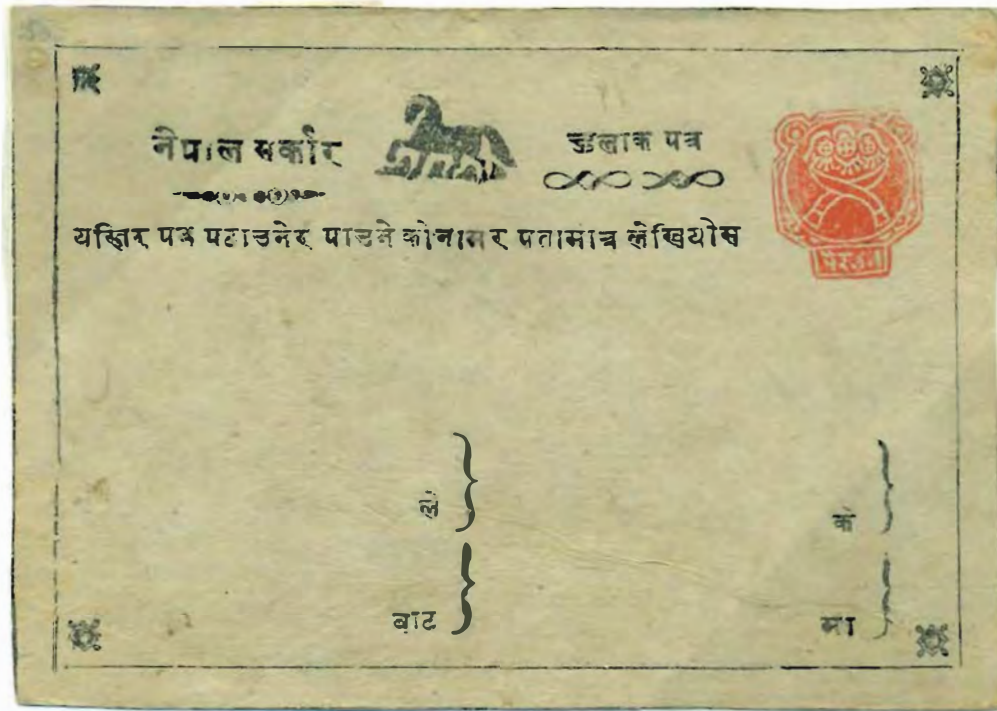 नेपाल सर्कार
हुलाक पत्र
यस्तिर पत्र पठाउनेर पाउनेकोनामर पतामात्र लेखियोस
ले
बाट
मा